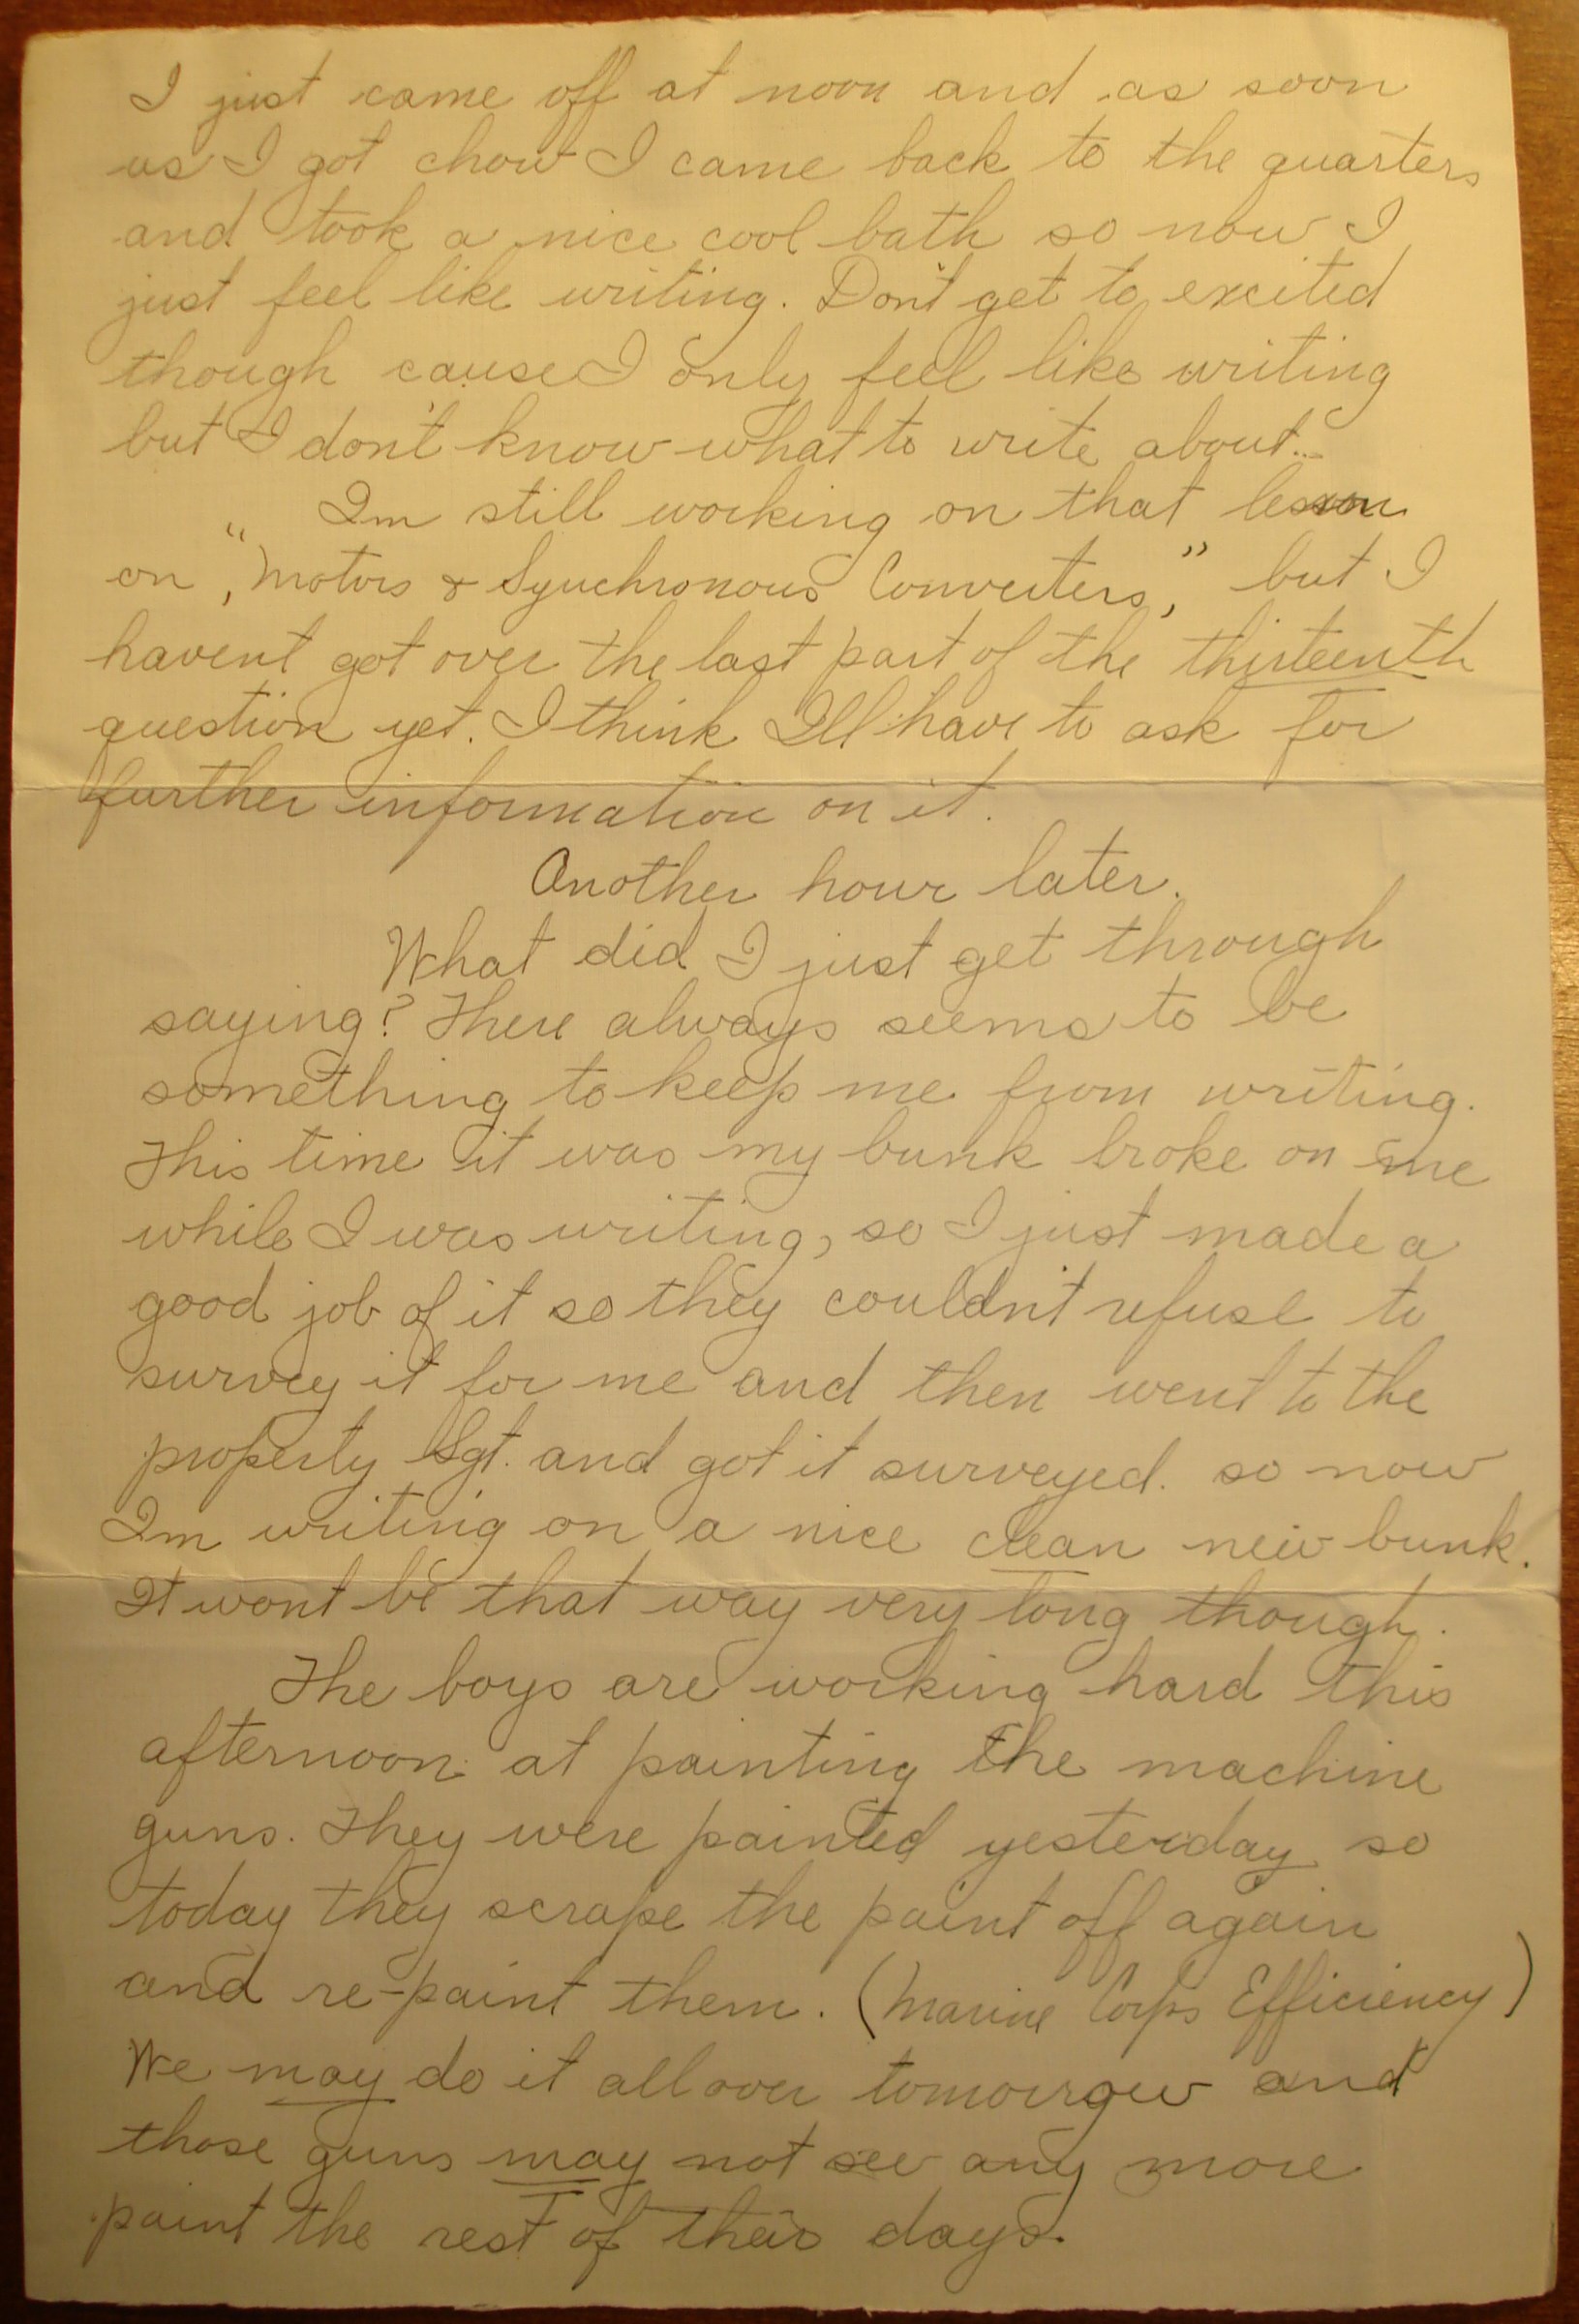 I just came off at noon and as soon
as I got chow I came back to the quarters
and took a nice cool bath so now I
just feel like writing. Don't get to excited
though cause I only feel like writing
but I don't know what to write about...
Im still working on that lesson
on, "Motors & Synchronous Converters," but I
havent got over the last part of the thirteenth
question yet. I think Ill have to ask for
further information on it.
Another hour later.
What did I just get through
saying? There always seems to be
something to keep me from writing.
This time it was my bunk broke on me
while I was writing, so I just made a
good job of it so they couldn't refuse to
survey it for me and then went to the
property Sgt. and got it surveyed. so now
Im writing on a nice clean new bunk.
It wont be that way very long though.
The boys are working hard this
afternoon at painting the machine
guns. They were painted yesterday so
today they scrape the paint off again
and re-paint them. (Marine Corps Efficiency)
We may do it all over tomorrow and
those guns may not see any more
paint the rest of their days.